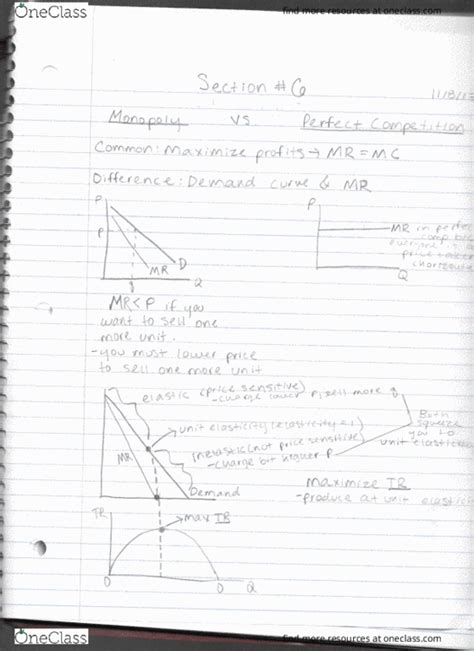 OneClass
find more resources at oneclass.com
Section #6
11/18/1
Monopoly vs Perfect Competition
Common: Maximize profits → MR = MC
Difference: Demand curve & MR
P
P
P
MR in perfect
comp
MR
D
Q
q
Q
MR<P if you
want to sell one
more unit.
-you must lower price
to sell one more unit
elastic (price sensitive)
-charge lower P, sell more q
Both
squeeze
you to
unit elasticity
unit elasticity (elasticity=1)
inelastic (not price sensitive)
-charge bit higher P
MR
Demand
maximize TR
-produce at unit elastic
TR
max TR
0
0
Q
OneClass
find more resources at oneclass.com